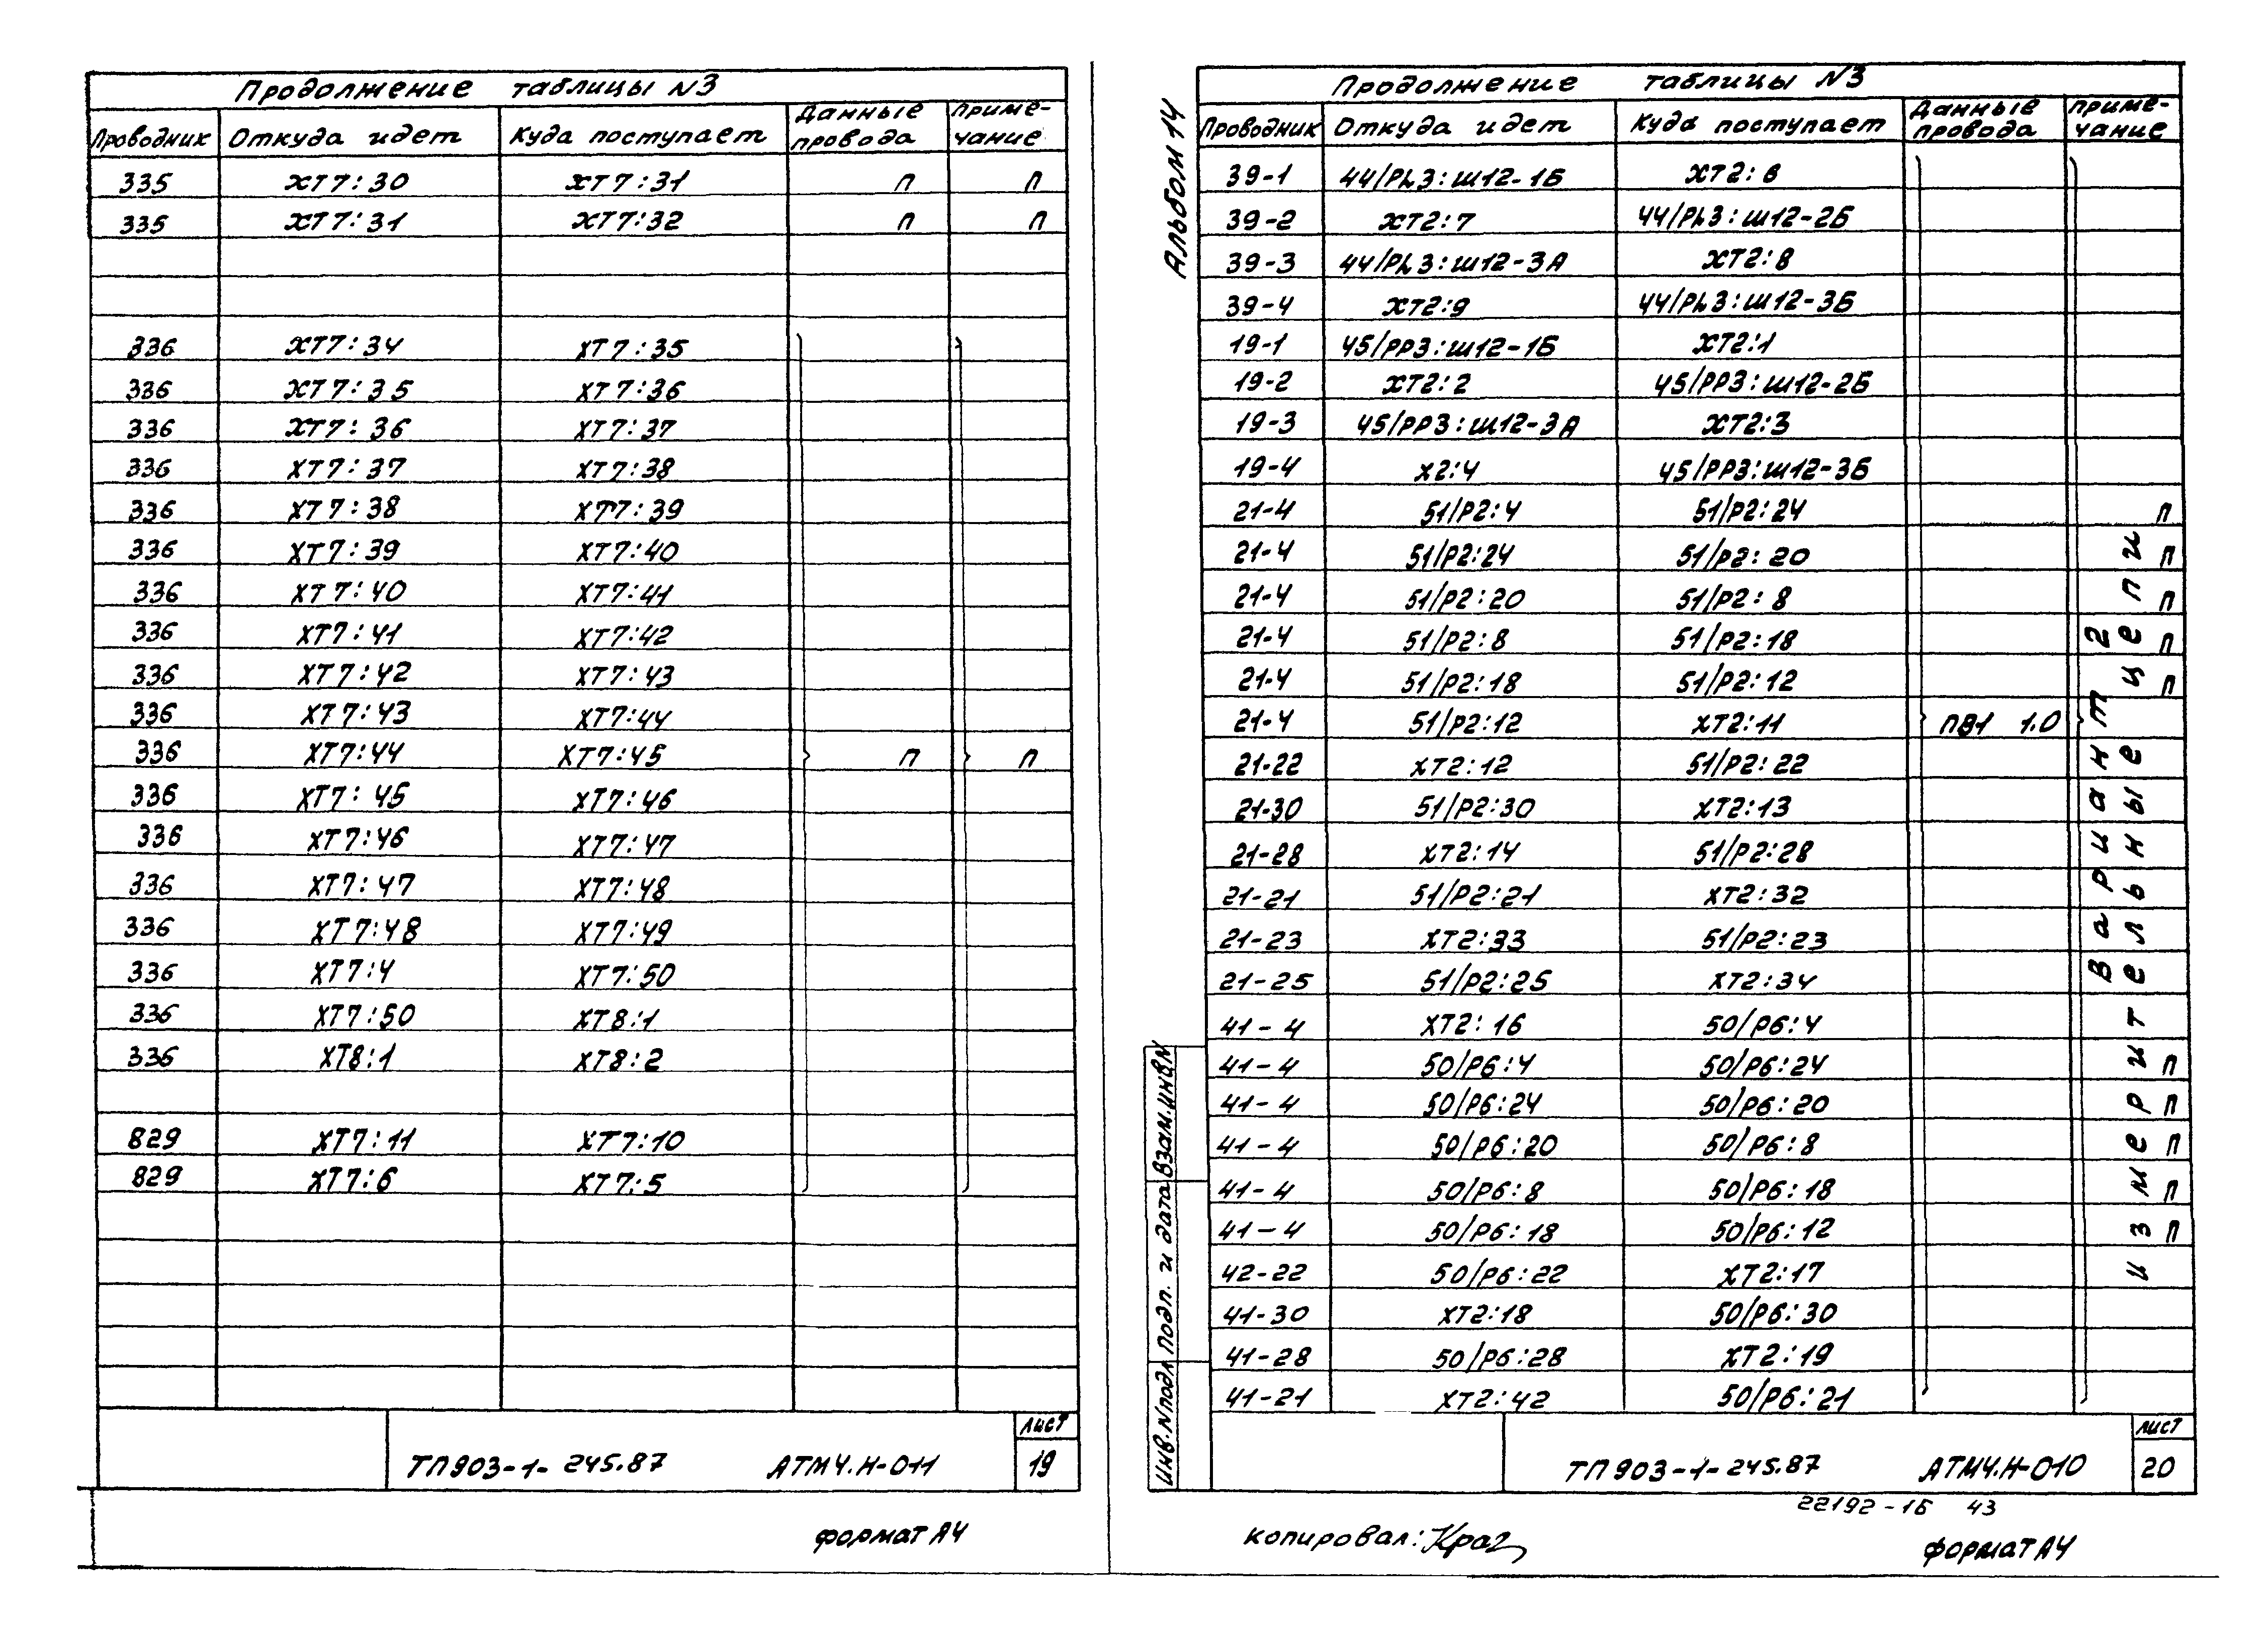 Продолжение таблицы N3
Проводник Откуда идет Куда поступает Данные провода Приме-чание
335 ХТ7:30 ХТ7:31 П П
335 ХТ7:31 ХТ7:32 П П
336 ХТ7:34 ХТ7:35
336 ХТ7:35 ХТ7:36
336 ХТ7:36 ХТ7:37
336 ХТ7:37 ХТ7:38
336 ХТ7:38 ХТ7:39
336 ХТ7:39 ХТ7:40
336 ХТ7:40 ХТ7:41
336 ХТ7:41 ХТ7:42
336 ХТ7:42 ХТ7:43
336 ХТ7:43 ХТ7:44
336 ХТ7:44 ХТ7:45 П П
336 ХТ7:45 ХТ7:46
336 ХТ7:46 ХТ7:47
336 ХТ7:47 ХТ7:48
336 ХТ7:48 ХТ7:49
336 ХТ7:4 ХТ7:50
336 ХТ7:50 ХТ8:1
336 ХТ8:1 ХТ8:2
829 ХТ7:11 ХТ7:10
829 ХТ7:6 ХТ7:5
ТП903-1-245.87 АТМ4.Н-011
Лист
19
Формат А4
Альбом 14
Продолжение таблицы N3
Проводник Откуда идет Куда поступает Данные провода Приме-чание
39-1 44/PL3:Ш12-1Б ХТ2:6
39-2 ХТ2:7 44/PL3:Ш12-2Б
39-3 44/PL3:Ш12-3А ХТ2:8
39-4 ХТ2:9 44/PL3:Ш12-3Б
19-1 45/РР3:Ш12-1Б ХТ2:1
19-2 ХТ2:2 45/РР3:Ш12-2Б
19-3 45/РР3:Ш12-3А ХТ2:3
19-4 Х2:4 45/РР3:Ш12-3Б
21-4 51/Р2:4 51/Р2:24 П
21-4 51/Р2:24 51/Р2:20 П
21-4 51/Р2:20 51/Р2:8 П
21-4 51/Р2:8 51/Р2:18 П
21-4 51/Р2:18 51/Р2:12 П
21-4 51/Р2:12 ХТ2:11 ПВ1 1.0
21-22 ХТ2:12 51/Р2:22
21-30 51/Р2:30 ХТ2:13
21-28 ХТ2:14 51/Р2:28
21-21 51/Р2:21 ХТ2:32
21-23 ХТ2:33 51/Р2:23
21-25 51/Р2:25 ХТ2:34
41-4 ХТ2:16 50/Р6:4
41-4 50/Р6:4 50/Р6:24 П
41-4 50/Р6:24 50/Р6:20 П
41-4 50/Р6:20 50/Р6:8 П
41-4 50/Р6:8 50/Р6:18 П
41-4 50/Р6:18 50/Р6:12 П
42-22 50/Р6:22 ХТ2:17
41-30 ХТ2:18 50/Р6:30
41-28 50/Р6:28 ХТ2:19
41-21 ХТ2:42 50/Р6:21
Вариант 2
Измерительные цепи
Инв.Nподл Подп. и дата Взам.инв.N
ТП903-1-245.87 АТМ4.Н-010
Лист
20
22192-1Б 43
Копировал: Краз
Формат А4